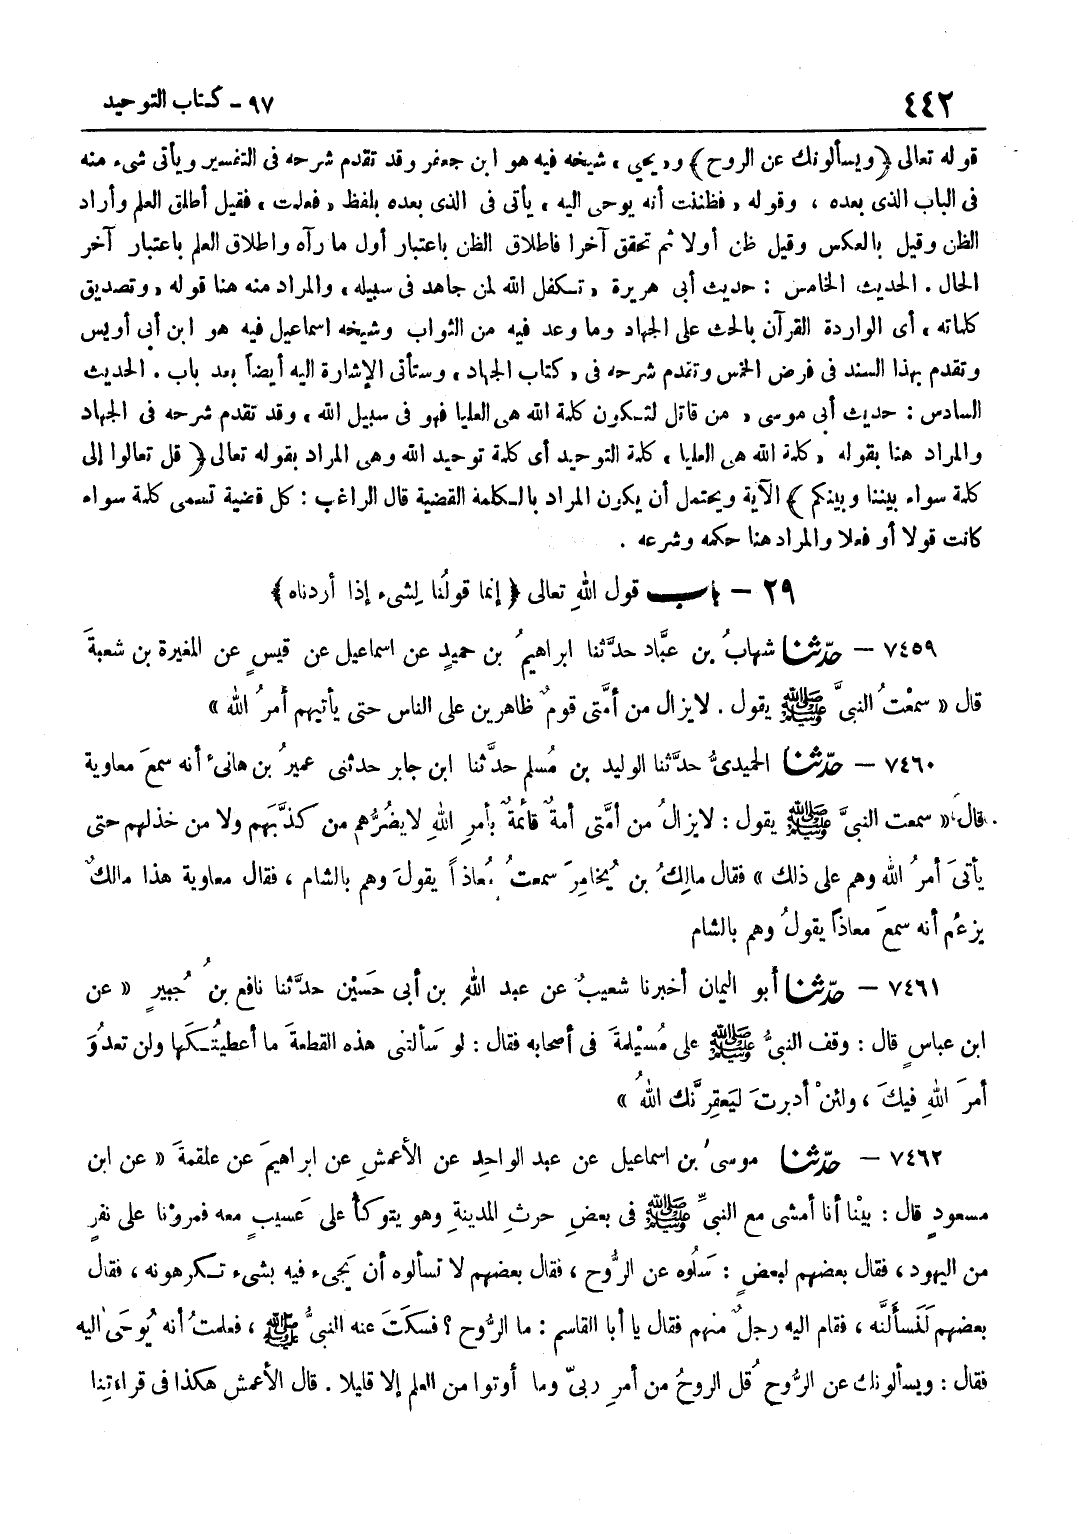 ٤٤٢
٩٧ - كتاب التوحيد
قوله تعالى ﴿ ويسألونك عن الروح ﴾ و« يحيى » شيخه فيه هو ابن جعفر وقد تقدم شرحه فى التفسير ويأتى شىء منه
فى الباب الذى بعده ، وقوله « فظننت أنه يوحى اليه » يأتى فى الذى بعده بلفظ « فعلمت » فقيل أطلق العلم وأراد
الظن وقيل بالعكس وقيل ظن أولا ثم تحقق آخرا فاطلاق الظن باعتبار أول ما رآه واطلاق العلم باعتبار آخر
الحال . الحديث الخامس : حديث أبى هريرة « تكفل الله لمن جاهد فى سبيله » والمراد منه هنا قوله « وتصديق
كلماته » أى الواردة القرآن بالحث على الجهاد وما وعد فيه من الثواب وشيخه اسماعيل فيه هو ابن أبى أويس
وتقدم بهذا السند فى فرض الخمس وتقدم شرحه فى « كتاب الجهاد » وستأتى الإشارة اليه أيضاً بعد باب . الحديث
السادس : حديث أبى موسى « من قاتل لتكون كلمة الله هى العليا فهو فى سبيل الله » وقد تقدم شرحه فى الجهاد
والمراد هنا بقوله « كلمة الله هى العليا » كلمة التوحيد أى كلمة توحيد الله وهى المراد بقوله تعالى ﴿ قل تعالوا إلى
كلمة سواء بيننا وبينكم ﴾ الآية ويحتمل أن يكون المراد بالكلمة القضية قال الراغب : كل قضية تسمى كلمة سواء
كانت قولا أو فعلا والمراد هنا حكمه وشرعه .
٢٩ - باب قول اللهِ تعالى ﴿ إنما قولُنا لِشىء إذا أردناه ﴾
٧٤٥٩ - حدّثنا شهابُ بن عبَّاد حدَّثنا ابراهيمُ بن حميدٍ عن اسماعيل عن قيسٍ عن المغيرة بن شعبةَ
قال « سمعْتُ النبىَّ ﷺ يقول . لايزال من أمَّتى قومٌ ظاهرين على الناس حتى يأتيهم أمرُ الله »
٧٤٦٠ - حدّثنا الحميدىُّ حدَّثنا الوليد بن مُسلم حدَّثنا ابن جابر حدثنى عميرُ بن هانىْ أنه سمعَ معاوية
قال « سمعت النبىَّ ﷺ يقول : لايزالُ من أمَّتى أمةٌ قائمةٌ بأمرِ اللهِ لايضُرُّهم من كذَّبَهم ولا من خذلهم حتى
يأتىَ أمرُ الله وهم على ذلك » فقال مالِكُ بن يُخامِرَ سمعتُ مُعاذاً يقولَ وهم بالشام ، فقال معاوية هذا مالكٌ
يزعُم أنه سمعَ معاذاً يقولُ وهم بالشام
٧٤٦١ - حدّثنا أبو اليمان أخبرنا شعيبٌ عن عبد اللهِ بن أبى حَسَيْن حدَّثنا نافع بنُ جُبيرٍ « عن
ابن عباسٍ قال : وقف النبىُّ ﷺ على مُسَيْلمةَ فى أصحابه فقال : لو سَألتنى هذه القطعةَ ما أعطيتُكَها ولن تعدُوَ
أمرَ اللهِ فيكَ ، ولئنْ أدبرتَ ليَعقِرَّنك اللهُ »
٧٤٦٢ - حدّثنا موسىُ بن اسماعيل عن عبد الواحِد عن الأعمشِ عن ابراهيمَ عن علقمةَ « عن ابن
مسعودٍ قال : بيْنا أنا أمشى مع النبىِّ ﷺ فى بعضِ حرثِ المدينةِ وهو يتوكأُ على عَسيبٍ معه فمرَرْنا على نفرٍ
من اليهود ، فقال بعضهم لبعضٍ : سَلُوه عن الرُّوح ، فقال بعضهم لا تسألوه أن يَجىء فيه بشىء تكرهونه ، فقال
بعضهم لَنَسألَنَّه ، فقام اليه رجلٌ منهم فقال يا أبا القاسم : ما الرُّوح ؟ فسكَتَ عنه النبىُّ ﷺ ، فعلمتُ أنه يُوحَى اليه
فقال : ويسألونك عن الرُّوح قُل الروحُ من أمرِ ربىّ وما أوتوا من العلم إلا قليلا . قال الأعمش هكذا فى قراءتِنا